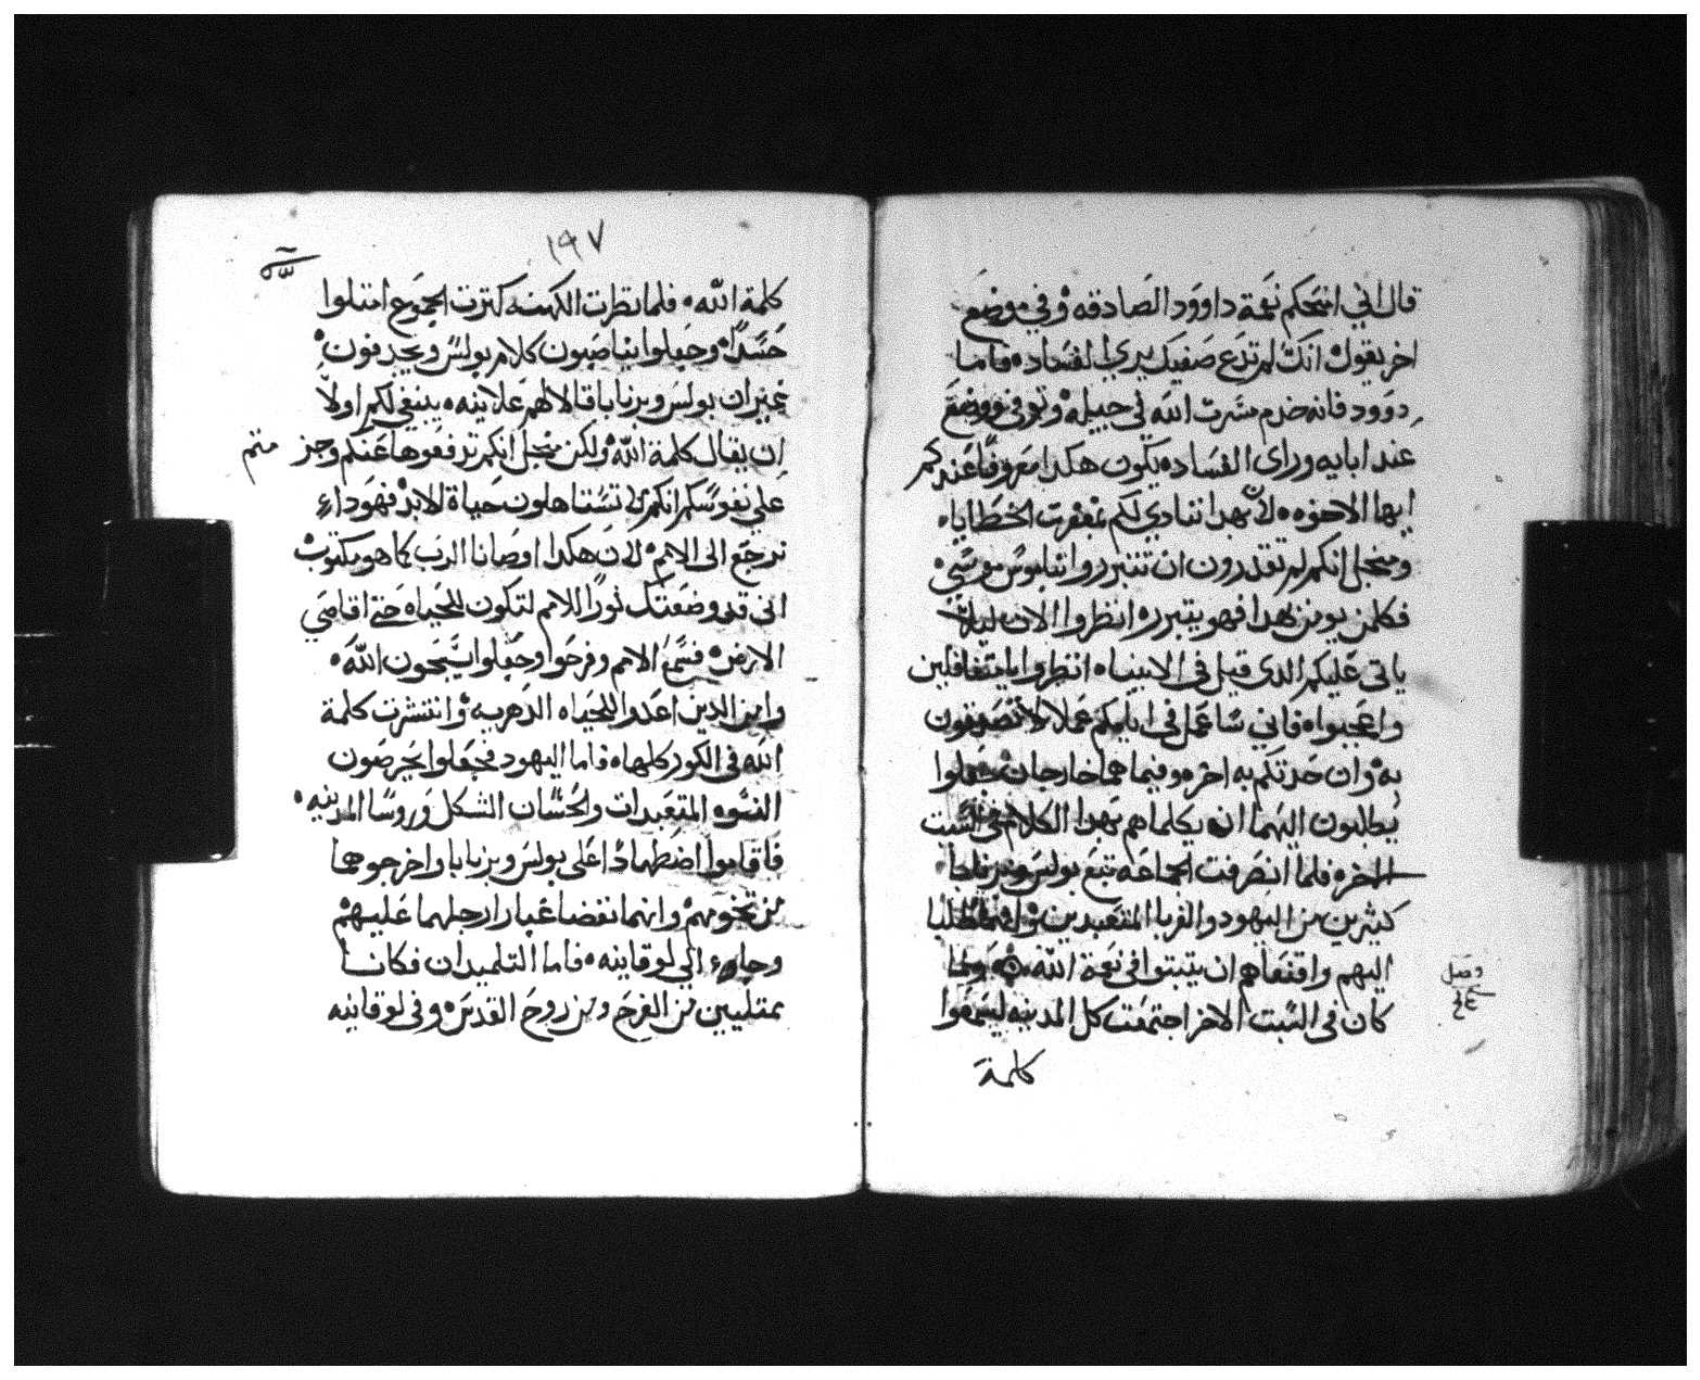 قال اني امنحكم نعمة داوود الصادقه وفي موضع
اخر يقول انك لم تدع صفيك يري الفساده فاما
دوود فانه خدم مسرت الله في جيله وتوفي ووضع
عند ابايه وراي الفساده يكون هكدا معروفا عندكم
ايها الاخوه لان بهدا ننادي لكم بمغفرت الخطايا
ومنجل انكم لم تقدرون ان تتبرروا بناموس موسي
فكلمن يومن بهدا فهو يتبرر انظروا الان ليلا
ياتي عليكم الدي قيل في الانبياه انظروا يا متغافلين
واعجبواه فاني ساعمل في ايامكم عملا لا تصدقون
به وان حدتكم به احد وفيما هما خارجان جعلوا
يطلبون اليهما ان يكلماهم بهدا الكلام في السبت
الاخره فلما انصرفت الجماعه تبع بولس وبرنابا
كثيرين من اليهود والغربا المتعبدين وانهما طلبا
اليهم واقنعاهم ان يتبتوا في نعمة الله ولما
فصل
٣٤
كان في السبت الاخر اجتمعت كل المدينه ليسمعوا
كلمة
١٩٧
كلمة الله فلما نظرت الكهنه كترت الجموع امتلوا
حسدا وجعلوا يناصبون كلام بولس ويجدفون
غير ان بولس وبرنابا قالا لهم علانيه ينبغي لكم اولا
ان يقال كلمة الله ولكن منجل انكم تدفعوها عنكم وجزمتم
علي نفوسكم انكم لا تستاهلون حياة الابد فهودا
نرجع الي الامم لان هكدا اوصانا الرب كما هو مكتوب
اني قد وضعتك نورا للامم لتكون للحياه حتي اقاصي
الارض فسمع الامم وفرحوا وجعلوا يسبحون الله
وامن الدين اعدوا للحياه الدهريه وانتشرت كلمة
الله في الكور كلهاه فاما اليهود فجعلوا يحرضون
النسوه المتعبدات والحسان الشكل وروسا المدينه
فاقاموا اضطهادا علي بولس وبرنابا واخرجوهما
من تخومهم وانهما نفضا غبار ارجلهما عليهم
وجاوء الي لوقانيه فاما التلميدان فكانا
ممتليين من الفرح ومن روح القدس وفي لوقانيه